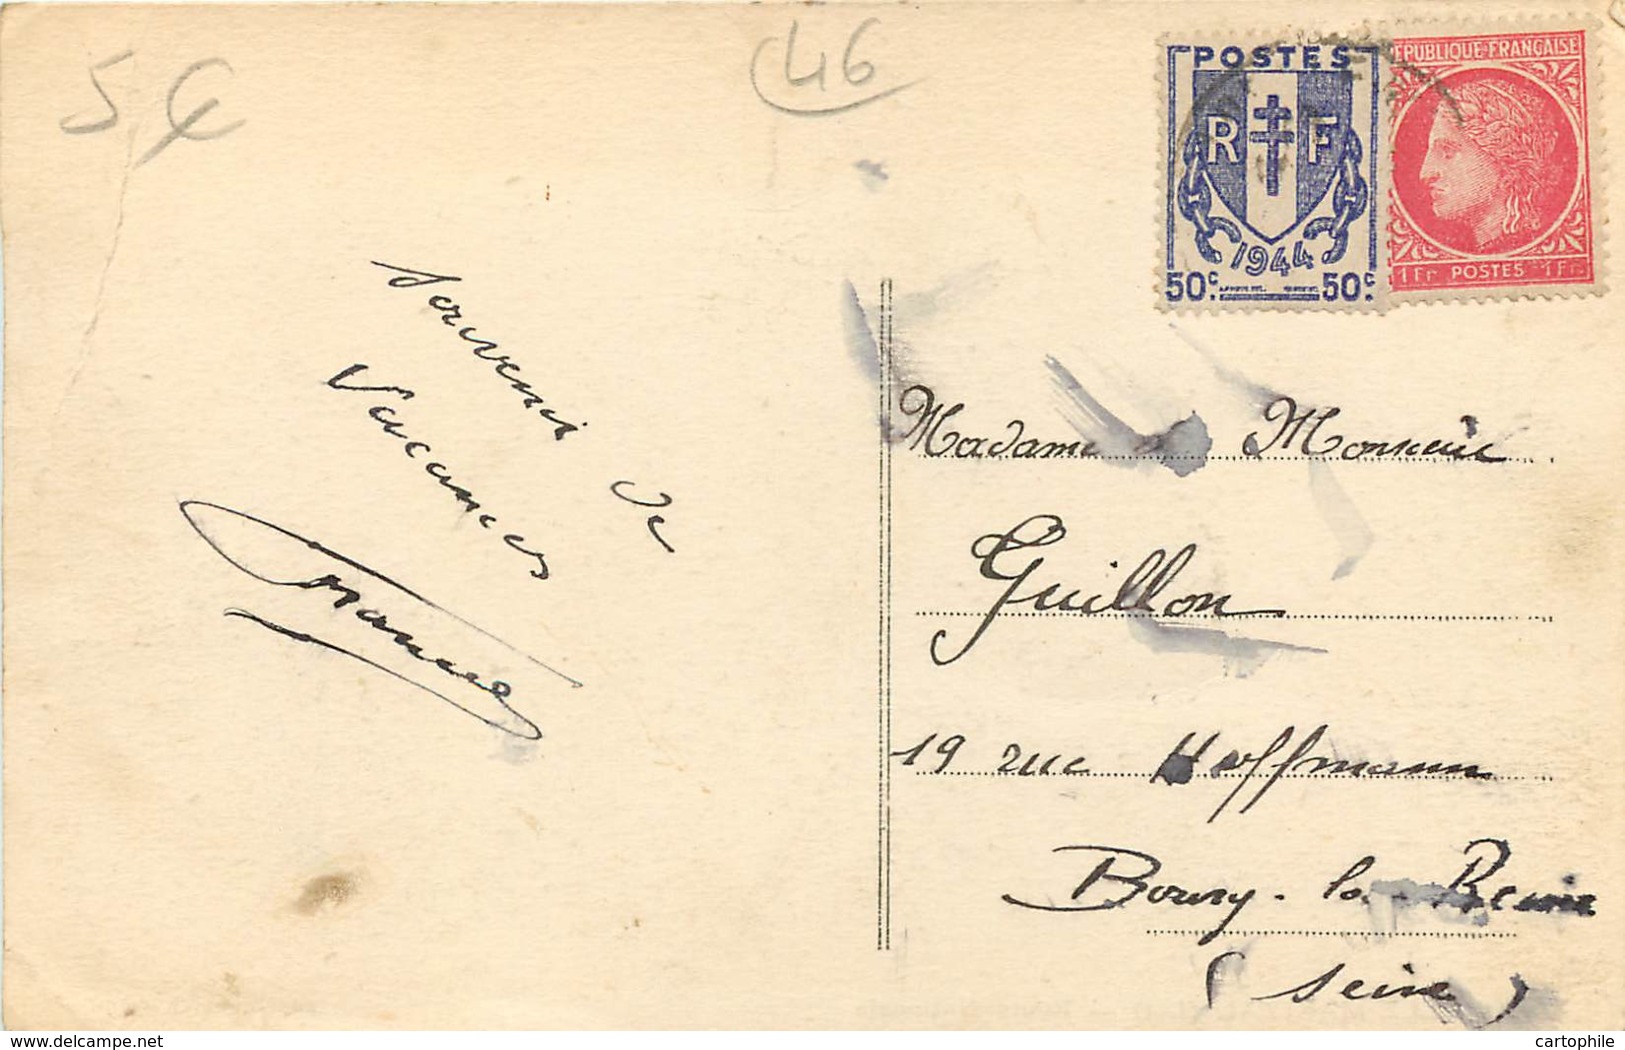 5€
46
POSTES
RF
1944
50c. 50c.
REPUBLIQUE FRANÇAISE
1Fr POSTES 1Fr
Souvenir de
Vacances
Madame et Monsieur
Guillon
19 rue Hoffmann
Bourg-la-Reine
(Seine)
www.delcampe.net
cartophile